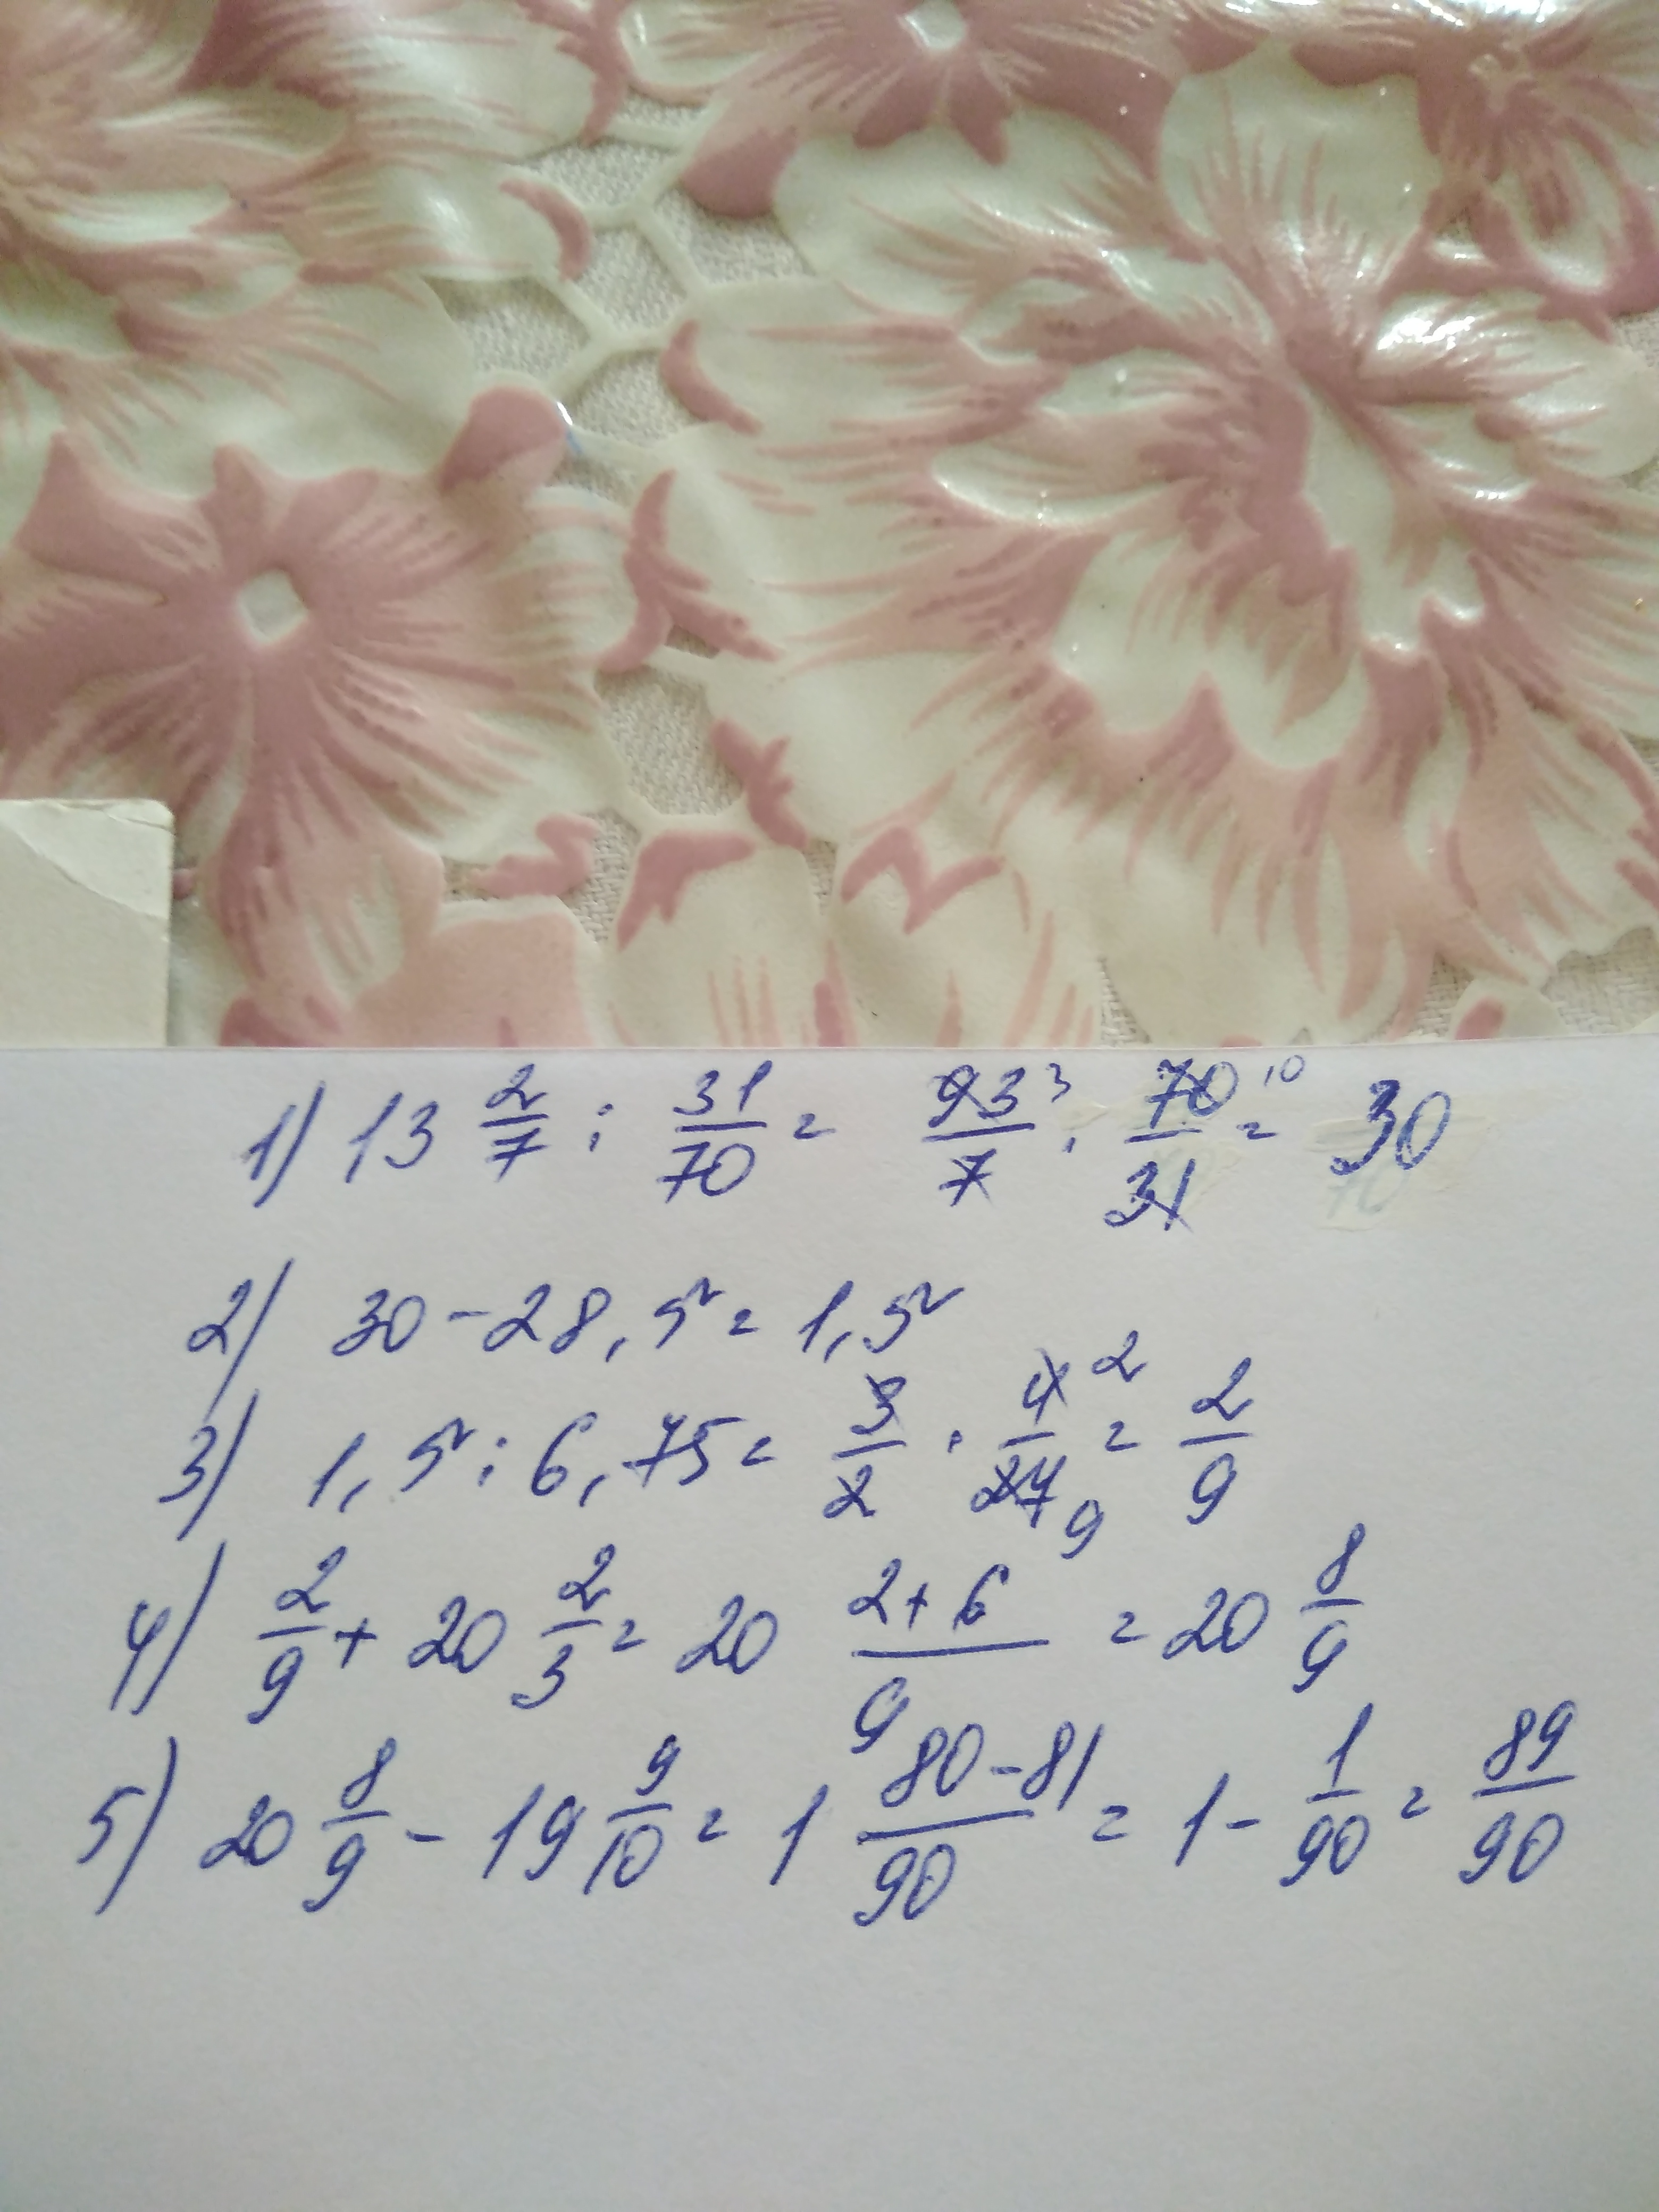 1) 13 2/7 : 31/70 = 93/7 3 · 70/31 10 = 30
2) 30 - 28,5 = 1,5
3) 1,5 : 6,75 = 3/2 · 4/27 2 9 = 2/9
4) 2/9 + 20 2/3 = 20 2+6/9 = 20 8/9
5) 20 8/9 - 19 9/10 = 1 80-81/90 = 1 - 1/90 = 89/90